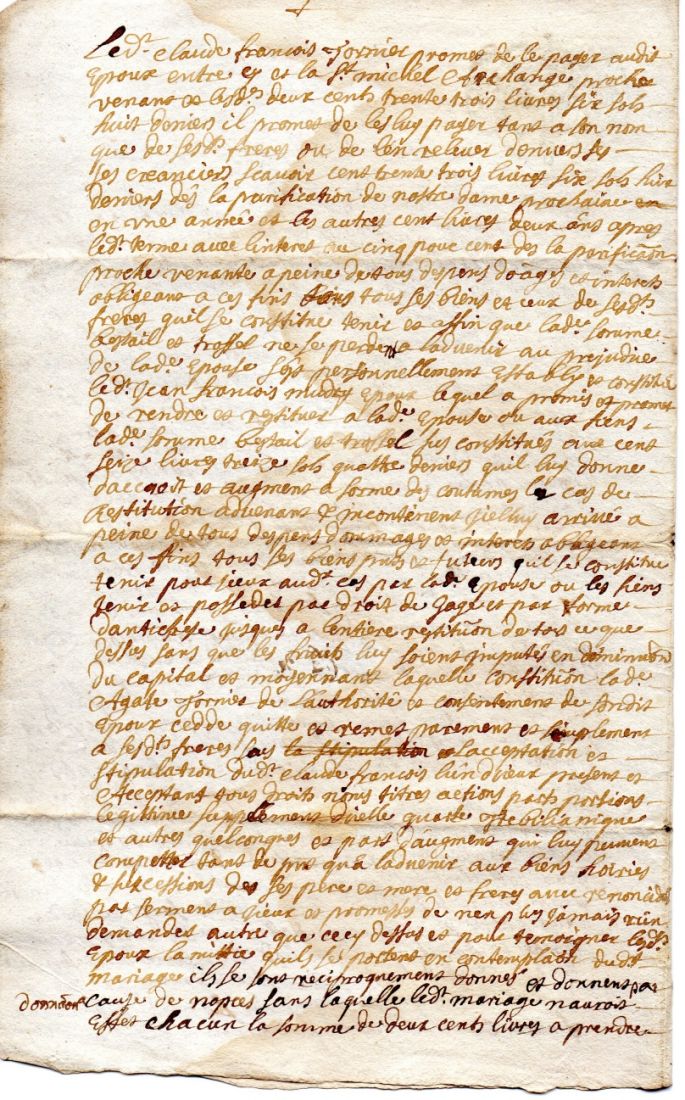 Led.t claude francois fornier promet de le payer audit
Epoux entre cy et la S.t michel Archange proche
venant et lesd.s deux cents trente trois livres six sols
huit deniers il promet de les luy payer tant a son nom
que de sesd.s freres ou de l'en relever envers ses
ses creanciers scavoir cent trente trois livres six sols huit
deniers dês la purification de nostre dame prochaine en
en une année et les autres cent livres deux âns apres
led.t terme avec linterest au cinq pour cent des la purificãon
proche venante a peine de tous despens dõages et interests
obligeant a ces fins tous ses biens et ceux de sesd.s
freres quil se constitue tenir et affin que lad.e somme
bestail et trossel ne se perdent a ladvenir au prejudice
de lad.e Epouse s'est personnellement establi et constitué
led.t Jean francois mudry Epoux lequel a promis et promet
de rendre et restituer a lad.e Epouse ou aux siens
lad.e somme bestail et trossel sus constitués avec cent
seize livres treize sols quattre deniers quil luy donne
daccroit et augment a forme des coutumes le cas de
restitution advenant & incontinent jceluy arrivé a
peine de tous despens dommages et interets obligeant
a ces fins tous ses biens p.nts et futeurs quil se constitue
tenir pour jceux aud.t cas par lad.e Epouse ou les siens
tenir et posseder par droit de gage et par forme
dantichrese jusques a lentiere restituõn de tot ce que
dessus sans que les fruits luy soient imputés en diminuõn
du capital et moyennant laquelle constituõn lad.e
Agate fornier de l'authorité et consentement de sondit
Epoux cedde quitte et remet purement et simplement
a sesd.s freres sous la stipulation et lacceptation et
stipulation dud.t claude francois lun d'jceux present et
Acceptant tous droits noms titres actions parts portions
legittime supplement d'jcelle quarte trebellianique
et autres quelconques et part d'augment qui luy peuvent
competter tant de p.nt qu'a ladvenir aux biens hoiries
& successions des ses pere et mere et freres avec renonciãon
par serment a jceux et promesse de n'en plus jamais rien
demander autre que cecy dessus et pour temoigner lesd.s
Epoux lamittie quils se portent en contemplaõn dudit
mariage ils se sont reciproquement donnés et donnent par
donnãon cause de nopces sans laquelle led.t mariage nauroit
Effet chacun la somme de deux cents livres a prendre